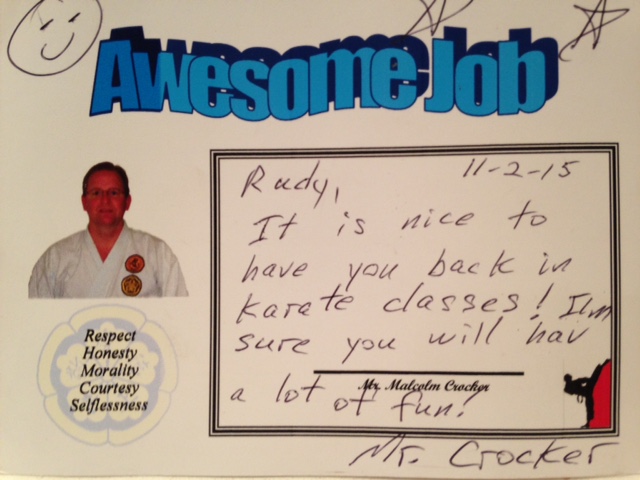 Awesome Job
Rudy, 11-2-15
It is nice to
have you back in
karate classes! I'm
sure you will hav
a lot of fun!
Mr. Malcolm Crocker
Mr. Crocker
Respect
Honesty
Morality
Courtesy
Selflessness